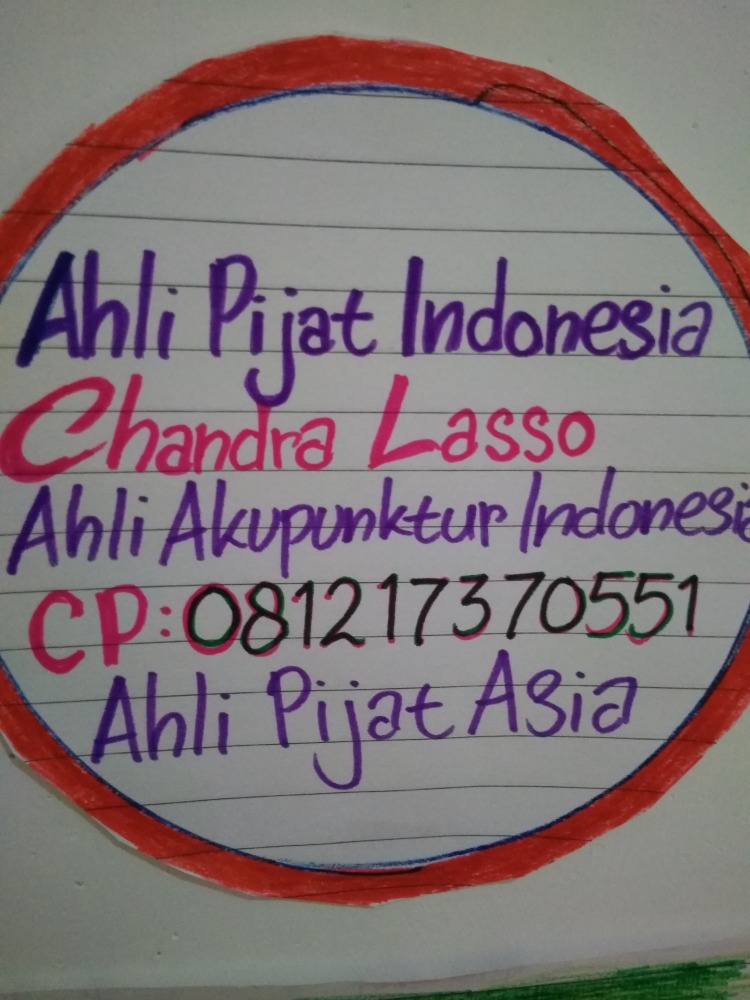 Ahli Pijat Indonesia
Chandra Lasso
Ahli Akupunktur Indonesia
CP:081217370551
Ahli Pijat Asia